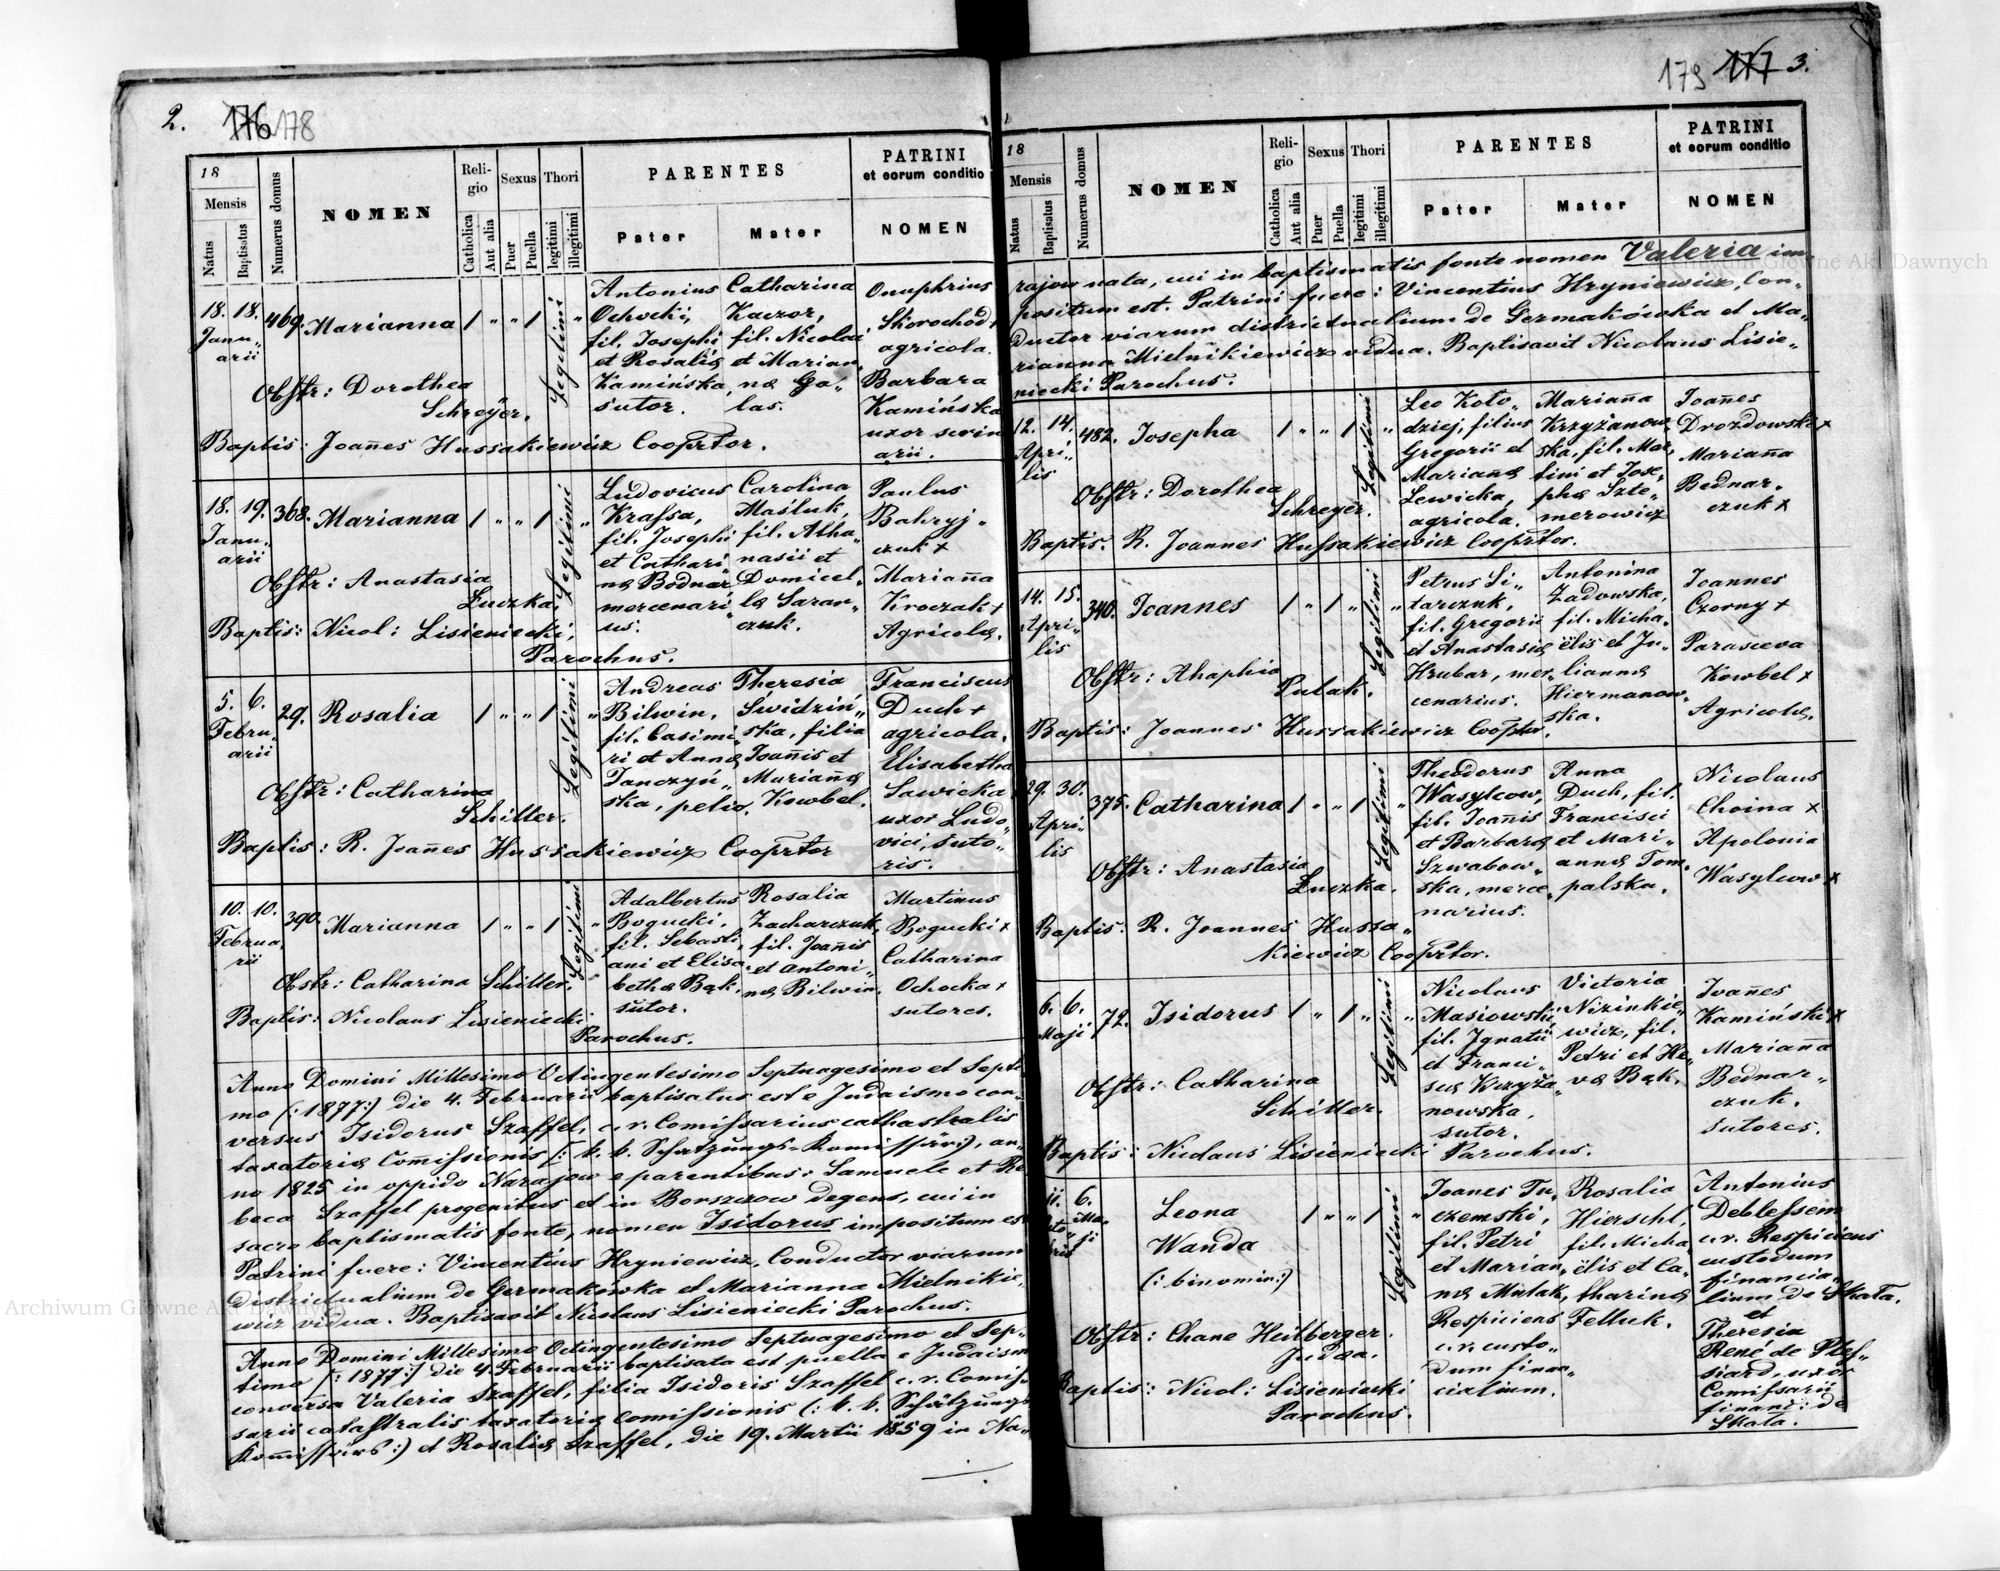 2. 176 178
18
Mensis
Natus
Baptisatus
Numerus domus
NOMEN
Reli-
gio
Catholica
Aut alia
Sexus
Puer
Puella
Thori
legitimi
illegitimi
PARENTES
Pater
Mater
PATRINI
et eorum conditio
NOMEN
18. 18. 469. Marianna 1 " " 1 Legitimi "
Janu„
arii
Antonius
Ochocki,
fil. Josephi
et Rosaliæ
Kamińska,
sutor.
Catharina
Kaczor,
fil. Nicolai
et Marian„
næ Ga„
las.
Onuphrius
Skorochod +
agricola.
Barbara
Kamińska
uxor scrin
arii.
Obstr: Dorothea
Schreyer.
Baptis: Joañes Hussakiewicz Cooprtor.
18. 19. 368. Marianna 1 " " 1 Legitimi "
Janu„
arii
Ludovicus
Krassa,
fil. Josephi
et Cathari„
næ Bodnar
mercenari„
us.
Carolina
Maśluk,
fil. Atha„
nasii et
Domicel„
læ Saran„
czuk.
Paulus
Bahryj„
czuk +
Mariaña
Kroczak +
Agricolæ.
Obstr: Anastasia
Łuczka.
Baptis: Nicol: Lisieniecki,
Parochus.
5. 6. 29. Rosalia 1 " " 1 Legitimi "
Febru„
arii
Andreas
Bilwin,
fil. Casimi„
ri et Annæ
Tanczyń„
ska, pelio.
Theresia
Swidziń„
ska, filia
Joañis et
Mariañæ
Kowbel.
Franciscus
Duch +
agricola.
Elisabetha
Sawicka
uxor Ludo„
vici, suto„
ris.
Obstr: Catharina
Schiller.
Baptis: R. Joañes Hussakiewicz Cooprtor
10. 10. 390. Marianna 1 " " 1 Legitimi "
Februa„
rii
Adalbertus
Bogucki,
fil. Sebasti„
ani et Elisa„
bethæ Bąk.
sutor.
Rosalia
Zacharczuk,
fil. Joañis
et Antoni„
næ Bilwin.
Martinus
Bogucki +
Catharina
Ochocka +
sutores.
Obstr: Catharina Schiller.
Baptis: Nicolaus Lisieniecki
Parochus.
Anno Domini Millesimo Octingentesimo Septuagesimo et Septi
mo (:1877:) die 4. Februarii baptisatus est e Judaismo con„
versus Isidorus Szaffel, c. r. Comissarius cathastralis
taxatoriæ Comissionis (: k. k. Schätzungs-Komissär:), an„
no 1825 in oppido Narajow e parentibus: Samuele et Re
beca Szaffel progenitus et in Borszczow degens, cui in
sacro baptismatis fonte, nomen Isidorus impositum est
Patrini fuere: Vincentius Hryniewicz, Conductor viarum
districtualium de Germakówka et Marianna Mielnikie„
wicz vidua. Baptisavit Nicolaus Lisieniecki Parochus.
Anno Domini Millesimo Octingentesimo Septuagesimo et Sep„
timo (:1877:) die 4. Februarii baptisata est puella e Judaism
conversa Valeria Szaffel, filia Isidoris Szaffel c. r. Comiss
sarii catastralis taxatoriæ Comissionis (: k. k. Schätzungs
Komissärs:) et Rosaliæ Szaffel, die 19. Martii 1859 in Na„
179 177 3.
18
Mensis
Natus
Baptisatus
Numerus domus
NOMEN
Reli-
gio
Catholica
Aut alia
Sexus
Puer
Puella
Thori
legitimi
illegitimi
PARENTES
Pater
Mater
PATRINI
et eorum conditio
NOMEN
rajow nata, cui in baptismatis fonte nomen Valeria im„
positum est. Patrini fuere: Vincentius Hryniewicz, Con„
ductor viarum districtualium de Germakówka et Ma„
rianna Mielnikiewicz vidua. Baptisavit Nicolaus Lisie„
niecki Parochus.
12. 14. 482. Josepha 1 " " 1 Legitimi "
Apri„
lis
Leo Koło„
dziej, filius
Gregorii et
Mariañæ
Lewicka,
agricola.
Mariaña
Krzyżanow„
ska, fil. Mar„
tini et Jose„
phæ Szte„
merowicz
Joañes
Drozdowski +
Mariaña
Bednar„
czuk +
Obstr: Dorothea
Schreyer.
Baptis. R. Joannes Hussakiewicz Cooprtor.
14. 15. 340. Joannes 1 " 1 " Legitimi "
Apri„
lis
Petrus Si„
tarczuk,
fil. Gregorii
et Anastasiæ
Hrubar, mer„
cenarius.
Antonina
Zadowska,
fil. Micha„
ëlis et Ju„
liannæ
Hiermanow„
ska.
Joannes
Czorny +
Parasceva
Kowbel +
Agricolæ.
Obstr: Ahaphia
Pulak.
Baptis: Joannes Hussakiewicz Cooprtor.
29. 30. 375. Catharina 1 " " 1 Legitimi "
Apri„
lis
Theodorus
Wasylcow,
fil. Joañis
et Barbaræ
Szwabow„
ska, merce„
narius.
Anna
Duch, fil.
Francisci
et Mari„
annæ Tom„
palska.
Nicolaus
Choina +
Apolonia
Wasylcow +
Obstr: Anastasia
Łuczka.
Baptis. R. Joannes Hussa„
kiewicz Cooprtor.
6. 6. 72. Isidorus 1 " 1 " Legitimi "
Maji
Nicolaus
Masiowski
fil. Ignatii
et Franci„
scæ Krzyża„
nowska.
sutor.
Victoria
Nizinkie„
wicz, fil.
Petri et He„
væ Bąk.
Joañes
Kamiński +
Mariaña
Bednar„
czuk.
sutores.
Obstr: Catharina
Schiller.
Baptis: Nicolaus Lisieniecki Parochus.
11. 6. Leona 1 " " 1 Legitimi "
Ma„
ji
Wanda
(: binomin:)
Joanes Tu„
czemski,
fil. Petri
et Marian„
næ Mulak,
Respiciens
c. r. custo„
dum finan„
cialium.
Rosalia
Hierschl,
fil. Micha„
ëlis et Ca„
tharinæ
Felluk.
Antonius
Deblessem
c. r. Respiciens
custodum
financia„
lium de Skała.
et
Theresia
René de Ples„
siard, uxor
Comissarii
financ: de
Skała.
Obstr: Chane Heilberger.
Judæa.
Baptis: Nicol: Lisieniecki
Parochus.
Archiwum Główne Akt Dawnych
Archiwum Główne Akt Dawnych